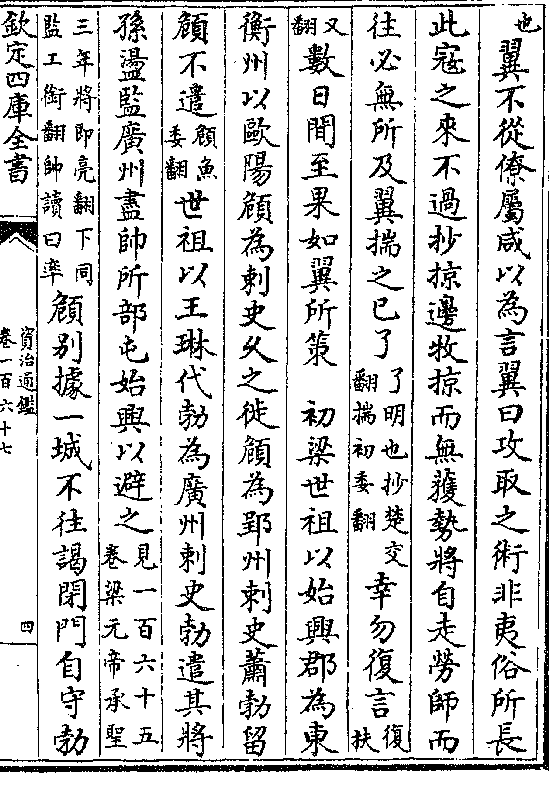 也翼不從僚屬咸以為言翼曰攻取之術非夷俗所長
此寇之來不過抄掠邊牧掠而無獲勢將自走勞師而
往必無所及翼揣之已了了明也抄楚交翻揣初委翻幸勿復言復扶
又翻數日間至果如翼所策　初梁世祖以始興郡為東
衡州以歐陽頠為刺史久之徙頠為郢州刺史蕭勃留
頠不遣頠魚委翻世祖以王琳代勃為廣州刺史勃遣其將
孫盪監廣州盡帥所部屯始興以避之見一百六十五卷梁元帝承聖
三年將即亮翻下同監工銜翻帥讀曰率頠别據一城不往謁閉門自守勃
欽定四庫全書
資治通鑑
卷一百六十七
四